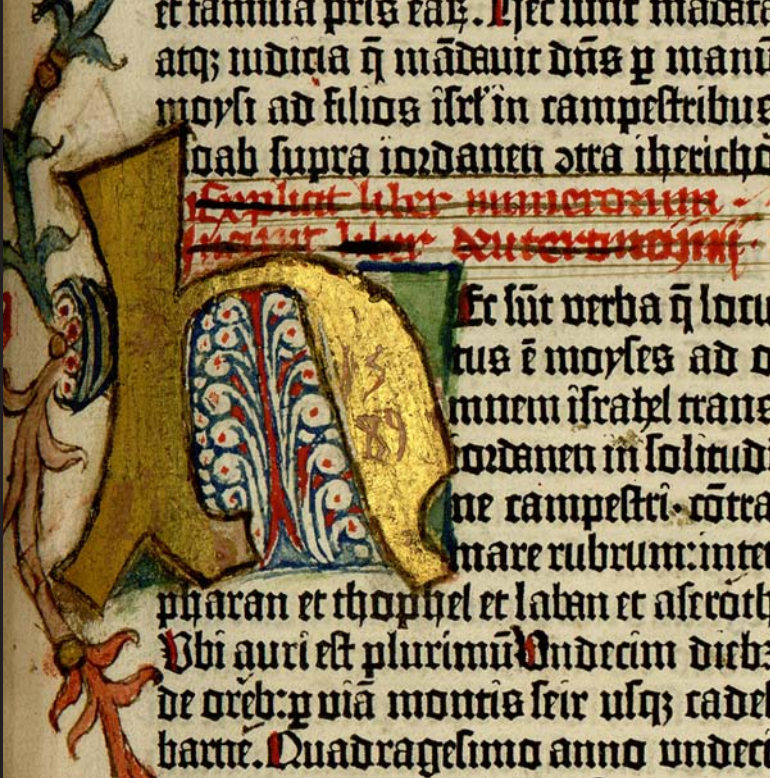 et familia pris̄ eaꝝ. Hec sunt mādata
atqꝫ iudicia q̄ mādauit dn̄s ꝑ manū
moysi ad filios isrl̄ in campestribus
moab supra iordanen ꝯtra iherichō
Explicit liber numerorum
Incipit liber deuteronomii
hEc sūt verba q̄ locu
tus ē moyses ad o
mnem israhel trans
iordanen in solitudi
ne campestri· cōtra
mare rubrum: inter
pharan et thophel et laban et aseroth
Vbi auri est plurimū Undecim diebꝫ
de oreb: ꝑ viā montis seir usqꝫ cades
barne. Quadragesimo anno undeci
15
89